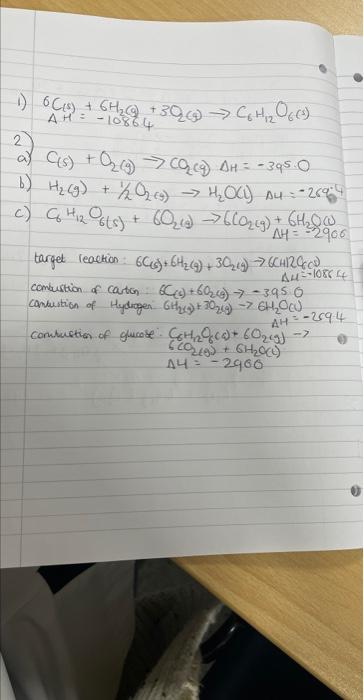 1) 6C(s) + 6H₂(g) + 3O₂(g) → C₆H₁₂O₆(s)
ΔH = -1086.4
2)
a) C(s) + O₂(g) → CO₂(g) ΔH = -395.0
b) H₂(g) + ½O₂(g) → H₂O(l) ΔH = -269.4
c) C₆H₁₂O₆(s) + 6O₂(g) → 6CO₂(g) + 6H₂O(l)
ΔH = -2900
target reaction: 6C(s) + 6H₂(g) + 3O₂(g) → 6CH12O6(s)
ΔH = -1086.4
combustion of carbon: 6C(s) + 6O₂(g) → -395.0
combustion of Hydrogen: 6H₂(g) + 3O₂(g) → 6H₂O(l)
ΔH = -269.4
combustion of glucose: C₆H₁₂O₆(s) + 6O₂(g) →
6CO₂(g) + 6H₂O(l)
ΔH = -2900